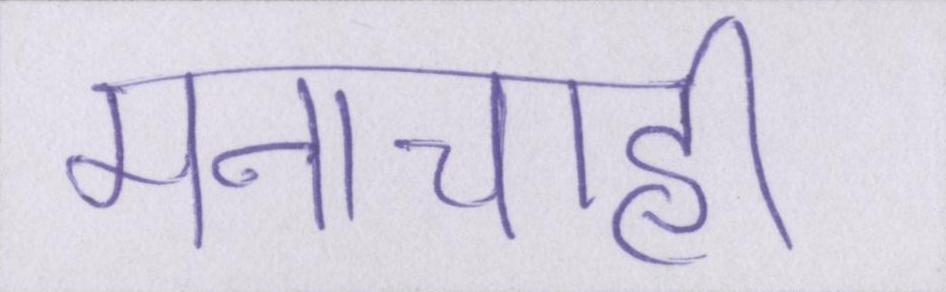 मनाचाही